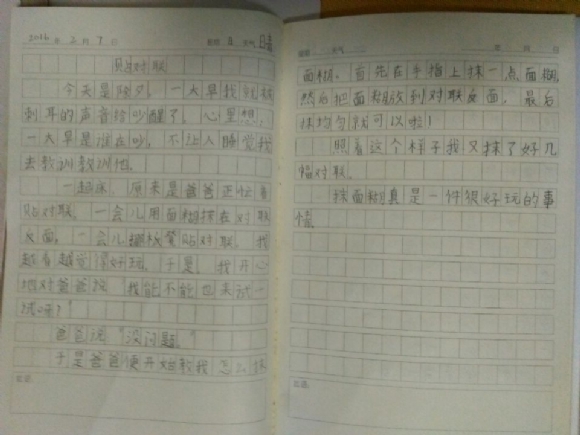 2016年2月7日 星期日 天气 晴
贴对联
今天是除夕。一大早我就被
刺耳的声音给吵醒了。心里想,
一大早是谁在吵,不让人睡觉我
去教训教训他。
一起床,原来是爸爸正忙着
贴对联。一会儿用面糊抹在对联
反面,一会儿搬板凳贴对联。我
越看越觉得好玩,于是,我开心
地对爸爸说"我能不能也来试一
试呀?"
爸爸说"没问题。"
于是爸爸便开始教我怎么抹
记录:
面糊。首先在手指上抹一点面糊,
然后把面糊放到对联反面,最后
抹均匀就可以啦!
照着这个样子我又抹了好几
幅对联。
抹面糊真是一件很好玩的事
情。